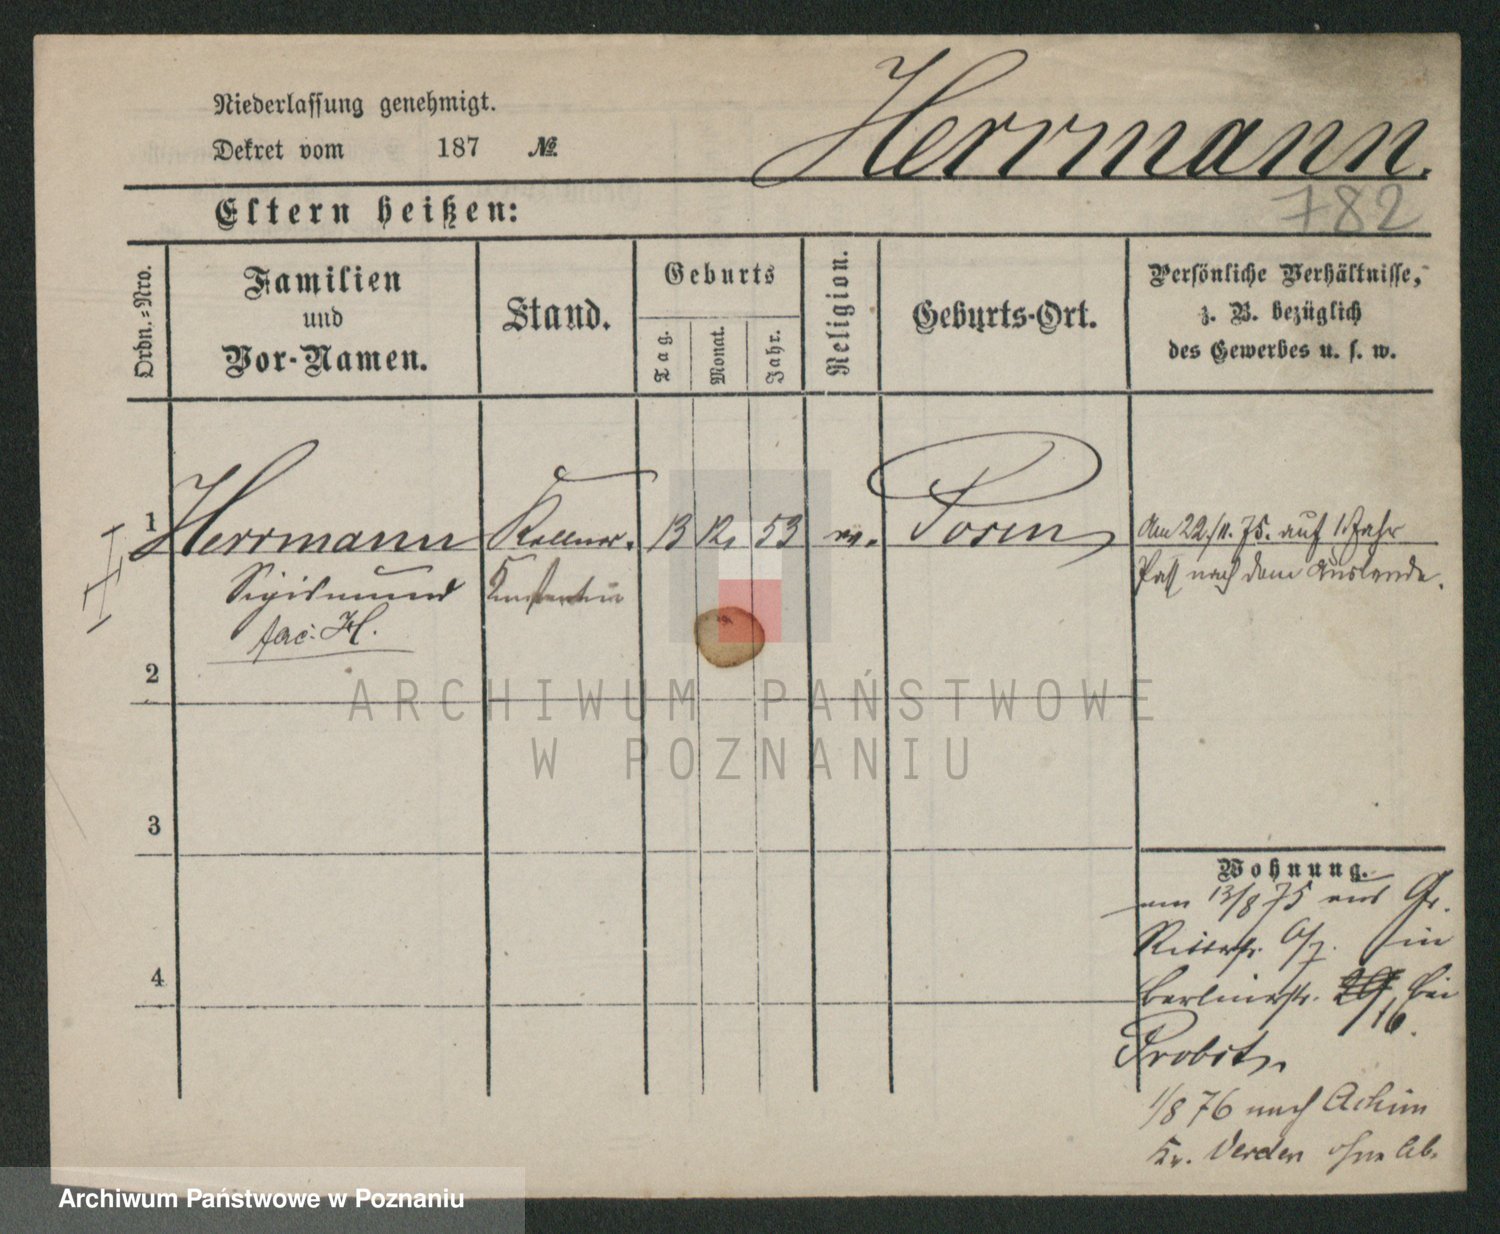 Niederlassung genehmigt.
Dekret vom 187 №
Herrmann.
782
Eltern heißen:
Ordn.-Nro.
Familien
und
Vor-Namen.
Stand.
Geburts
Tag.
Monat.
Jahr.
Religion.
Geburts-Ort.
Persönliche Verhältnisse,
z. B. bezüglich
des Gewerbes u. s. w.
1 Herrmann Kellner. 13 12. 53 Posen Am 22./11. 75. auf 1 Jahr
Sigismund Paß nach dem Auslande.
H.
2
ARCHIWUM PAŃSTWOWE
W POZNANIU
3
Wohnung.
am 13/8 75 aus Gr.
Ritterstr. in
Berlinerstr. bei
16.
Probst
1/8 76 nach Achim
Kr. Verden ohne Ab.
4
Archiwum Państwowe w Poznaniu